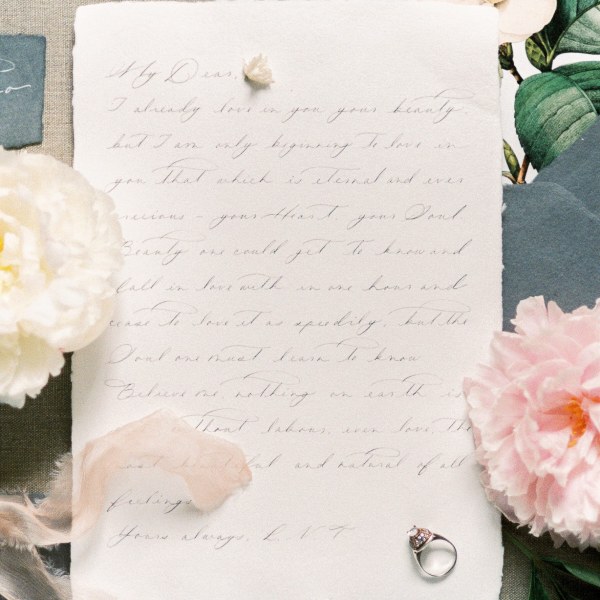 My Dear,
I already love in you your beauty,
but I am only beginning to love in
you that which is eternal and ever
precious – your Heart, your Soul
Beauty one could get to know and
fall in love with in one hour and
cease to love it as speedily, but the
Soul one must learn to know
Believe me, nothing on earth is
without labour, even love, the
most beautiful and natural of all
feelings
Yours always, L. N. T